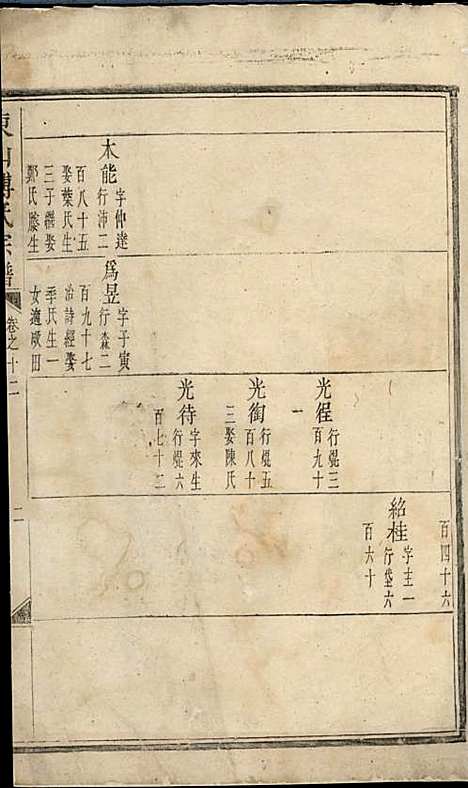 百四十六
紹桂
字主一
行垈六
百六十
光程
行焜三
百九十
一
光衜
行焜五
百八十
三娶陳氏
光待
字來生
行焜六
百七十二
木能
字仲逵
行沛二
百八十五
娶葉氏生
三子繼娶
鄭氏媵生
為昱
字子寅
行森二
百九十七
治詩經娶
季氏生一
女適
田
傅氏宗譜
卷之十二
二